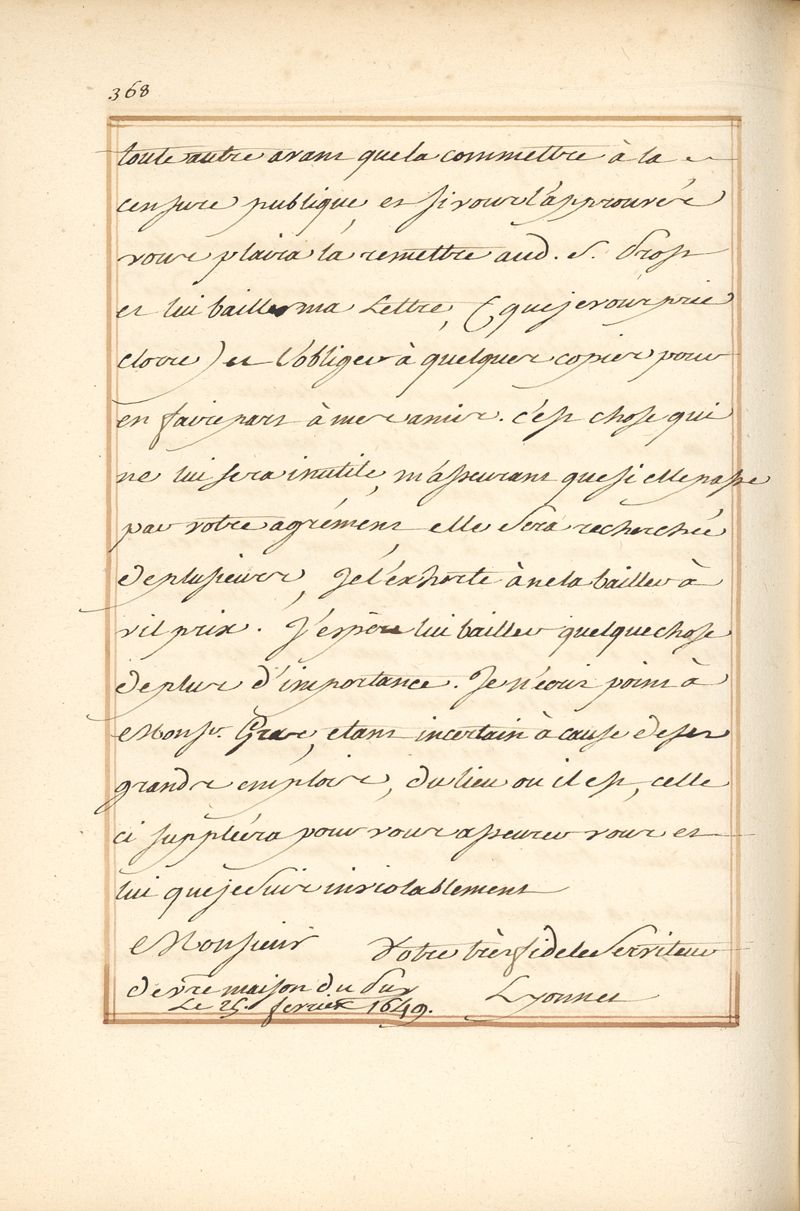 368
toute autre avant que la commettre à la
censure publique, et si vous l'approuvés
vous plaira la remettre aud. S. Drost
et lui bailler ma Lettre, (que je vous prie
clorre) et l'obliger à quelques copies pour
en faire part à mes amis. c'est chose qui
ne lui sera inutile, m'asseurant que si elle passe
par votre agrément elle sera recherchée
de plusieurs, Je l'exhorte à ne la bailler à
vil prix. J'espère lui bailler quelque chose
de plus d'importance. Je n'écris point à
Monsr. Gras, etant incertain à cause de ses
grands emplois, du lieu ou il est, celle
ci suppléera pour vous asseurer vous et
lui que je suis inviolablement
Monsieur Votre très fidele Serviteur
De vre maison du Lyonnes
Le 25. fevrier 1649.